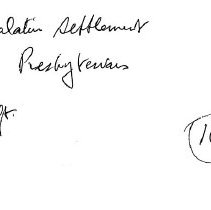 alatin Settlement
Presbyterians
ft.